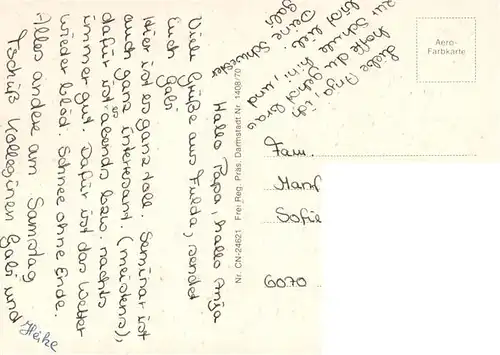 Hallo Papa, hallo Anja
Viele Grüße aus Fulda, sendet
Euch Gabi
Hier ist es ganz toll. Seminar ist
auch ganz interesant. (meistens),
dafür ist es abends bzw. nachts
immer gut. Dafür ist das Wetter
wieder blöd. Schnee ohne Ende.
Alles andere am Samstag
Tschüß Kolleginen Gabi und
Heike
Liebe Anja, ich
hoffe du gehst brav
zur Schule hin, und
bist lieb.
Deine Schwester
Gabi
Nr. CN-24621 Frei Reg. Präs. Darmstadt Nr. 1408/70
Aero-
Farbkarte
Fam.
Manf
Sofie
6070